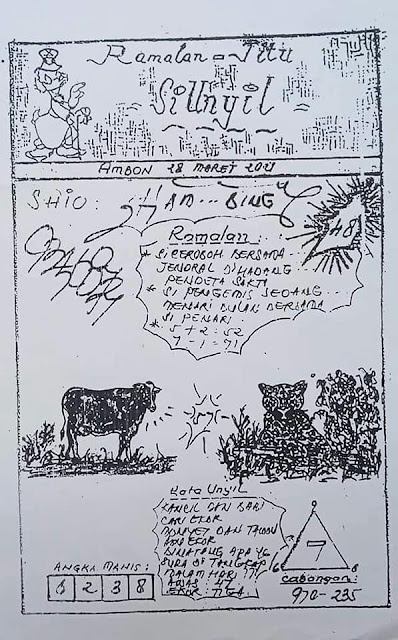 Ramalan - Jitu
Si Unyil
AMBON 28 MARET 2021
SHIO: HAM... BING
48
Ramalan:
* SI CEROBOH BERSAMA
JENDRAL DIHADANG
PENDETA SAKTI
* SI PENGEMIS SEDANG
MENARI BULAN BERSAMA
SI PENARI
* 5 + 2 : 52
7 - 1 = 71
Kata Unyil
KANCIL DAN BABI
CARI EKOR
MONYET DAN
EKOR
BINATANG APA YG
SUKA DI TANGKAP
MALAM HARI ???
AWAS 47
EKOR : TIGA
ANGKA MANIS:
6 2 3 8
7
6 8
Cabangan:
970-235